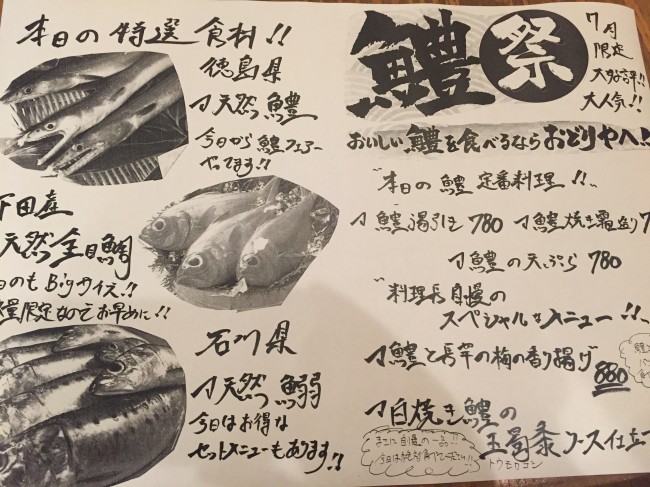 本日の特選食材!!
徳島県
天然鱧
今日から鱧フェアー
やってます!!
下田産
天然金目鯛
のもBigサイズ!!
量限定なのでお早めに!!
石川県
天然鰯
今日はお得な
セットメニューもあります!!
鱧祭
7月
限定
大好評!!
大人気!!
おいしい鱧を食べるならおどりやへ!!
"本日の鱧定番料理!!"
鱧湯引き 780
鱧焼き霜造り 7
鱧の天ぷら 780
"料理長自慢の
スペシャルなメニュー!!"
鱧と長芋の梅の香り揚げ
880
白焼き鱧の
玉蜀黍ソース仕立
トウモロコシ
まさに自慢の一品!!
今日は絶対食べて下さい!!